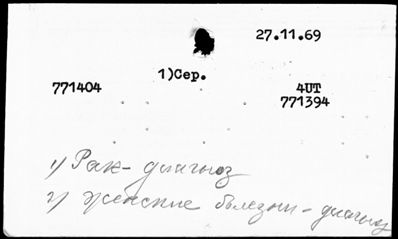 27.11.69
1)Сер.
771404 4UT
771394
1) Рак - диагноз
2) Женские болезни - диагноз